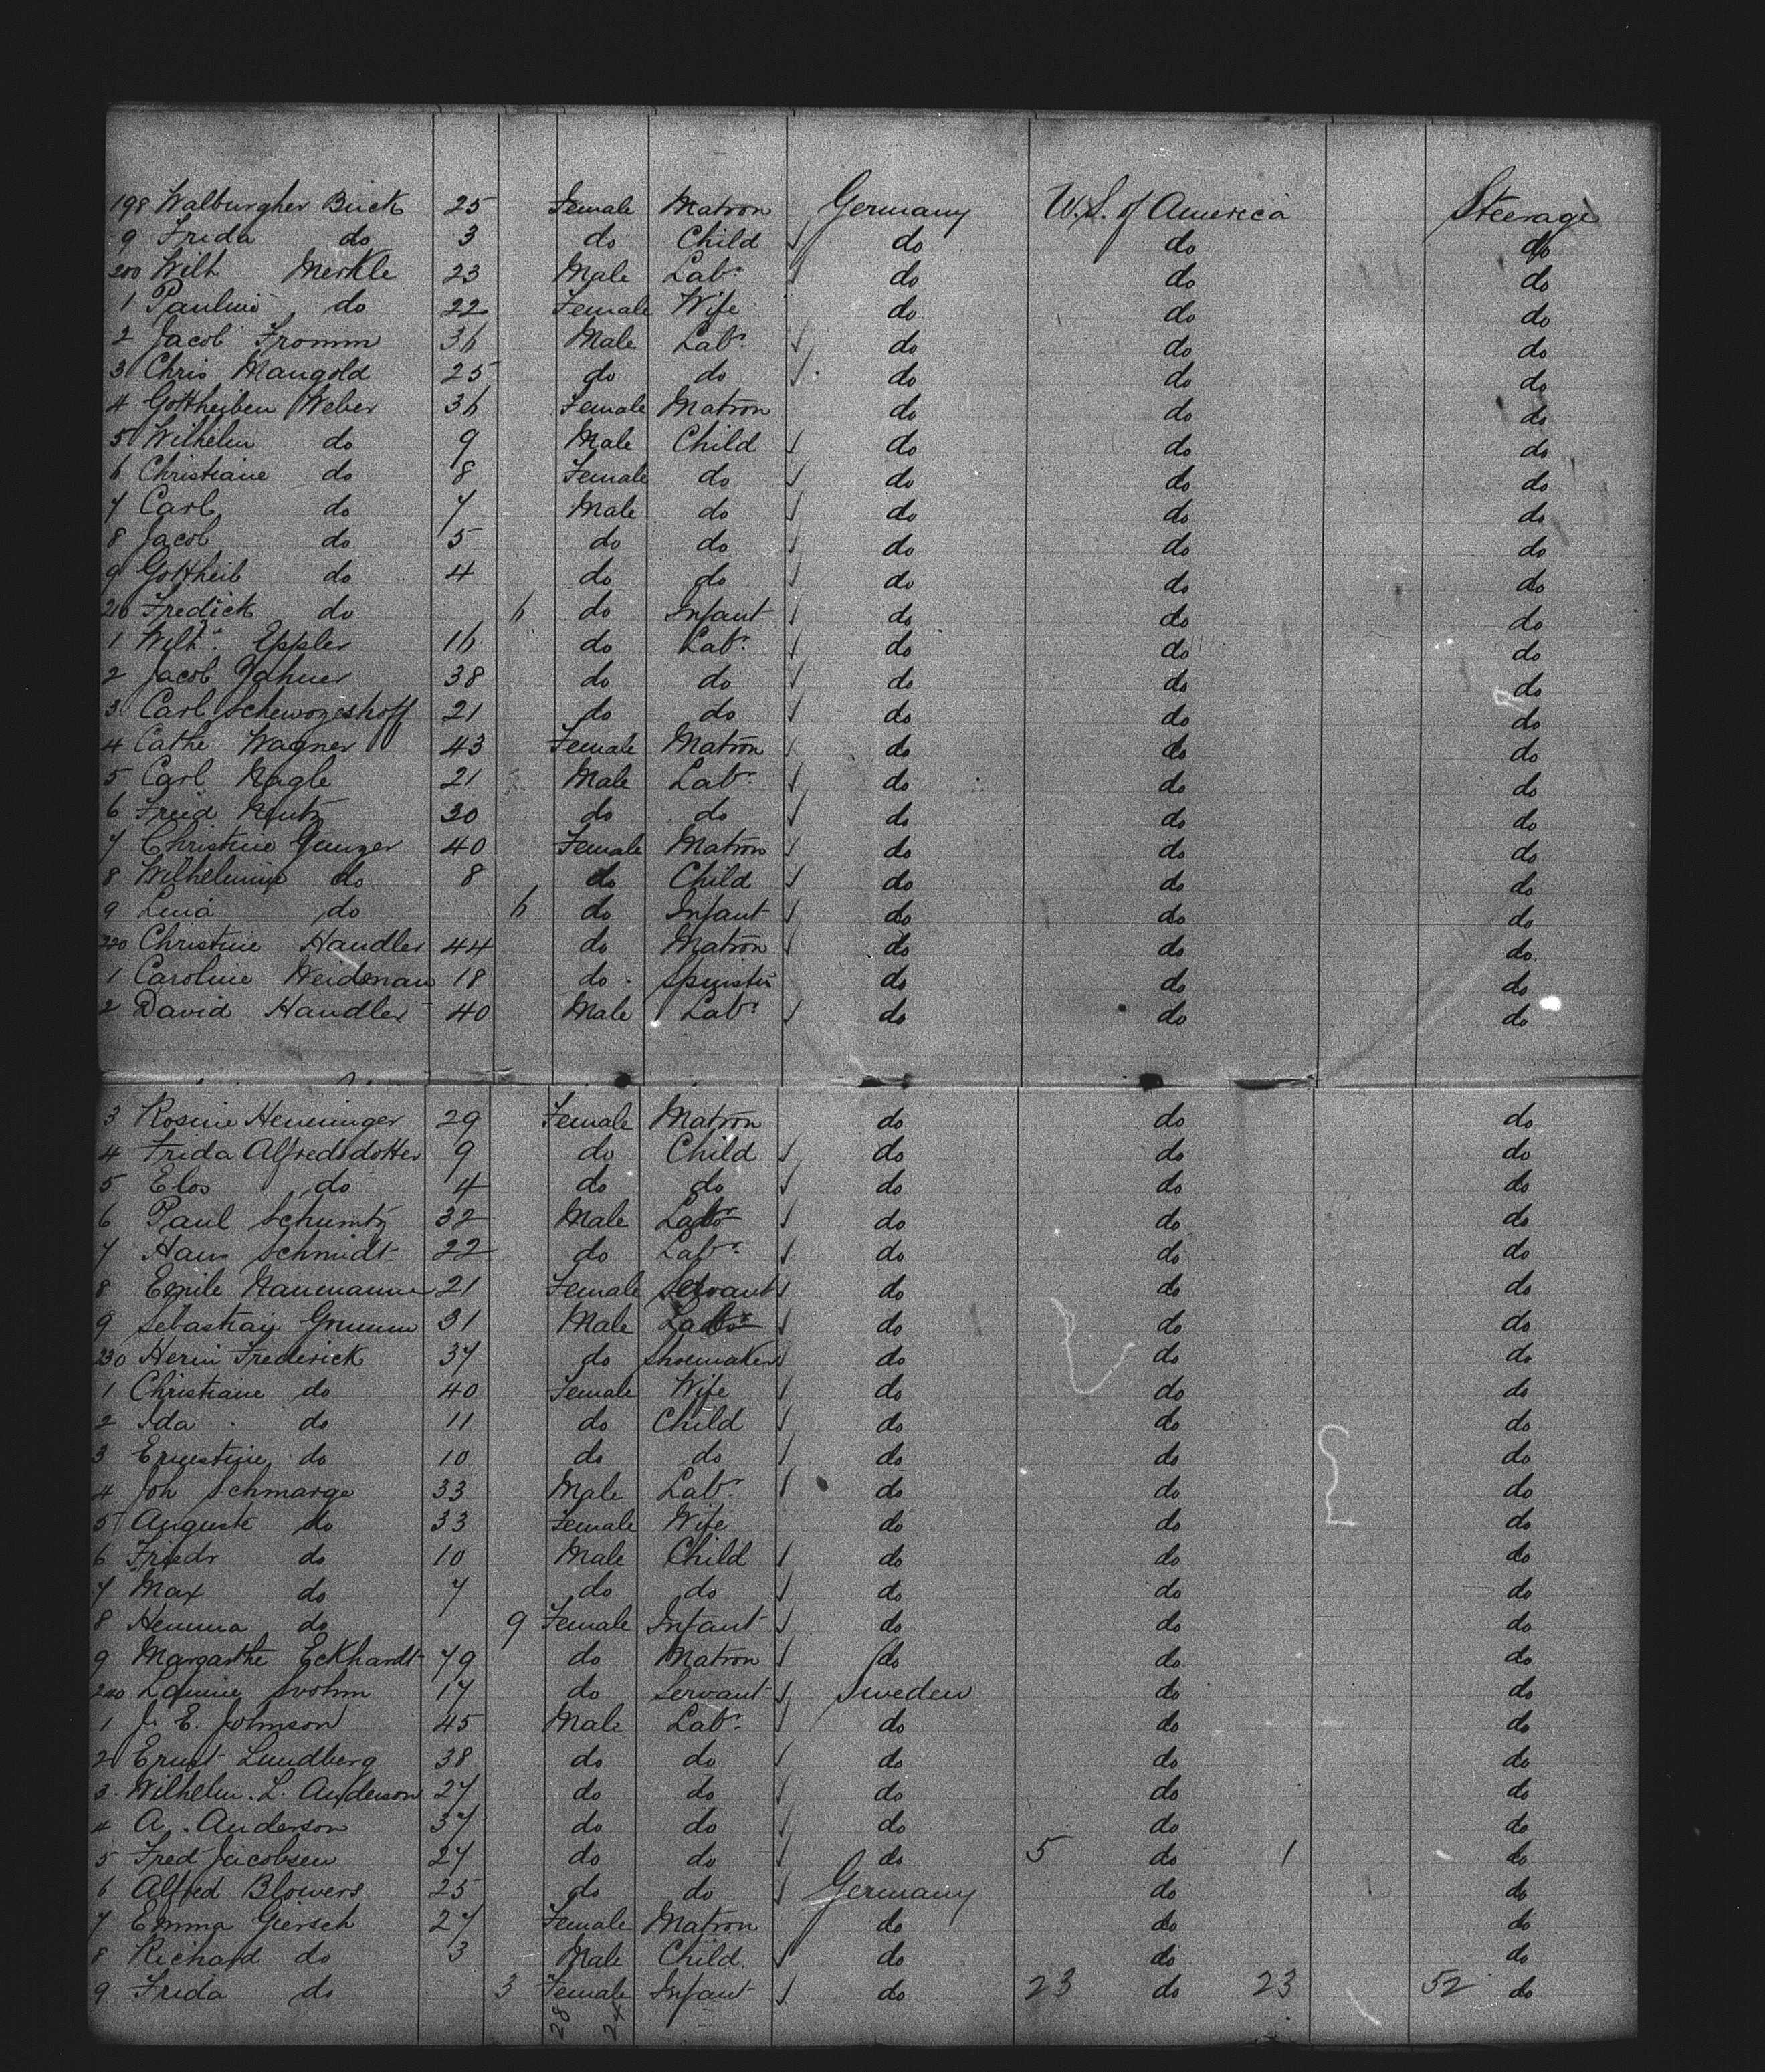 198 Walburgher Buck 25 Female Matron Germany U.S. of America Steerage
9 Frida do 3 do Child do do do
200 Wilh Merkle 23 Male Labr do do do
1 Pauline do 22 Female Wife do do do
2 Jacob Fromm 36 Male Labr do do do
3 Chris Mangold 25 do do do do do
4 Gottheiben Weber 36 Female Matron do do do
5 Wilhelm do 9 Male Child do do do
6 Christiane do 8 Female do do do do
7 Carl do 7 Male do do do do
8 Jacob do 5 do do do do do
9 Gottheib do 4 do do do do do
210 Fredick do 6 do Infant do do do
1 Wilh. Eppler 16 do Labr do do do
2 Jacob Zahner 38 do do do do do
3 Carl 21 do do do do do
4 Cathe Wagner 43 Female Matron do do do
5 Carl Nagle 21 Male Labr do do do
6 Fried Kautz 30 do do do do do
7 Christine Genzer 40 Female Matron do do do
8 Wilhelmine do 8 do Child do do do
9 Lina do 6 do Infant do do do
220 Christine Handler 44 do Matron do do do
1 Caroline Weidenau 18 do Spinster do do do
2 David Handler 40 Male Labr do do do
3 Rosine Henninger 29 Female Matron do do do
4 Frida Alfredsdotter 9 do Child do do do
5 Elos do 4 do do do do do
6 Paul Schumtz 32 Male Labr do do do
7 Hans Schmidt 22 do Labr do do do
8 Emile Naumanne 21 Female Servant do do do
9 Sebastian Grumm 31 Male Labr do do do
230 Herm Frederick 37 do Shoemaker do do do
1 Christiane do 40 Female Wife do do do
2 Ida do 11 do Child do do do
3 Ernestine do 10 do do do do do
4 Joh Schmarge 33 Male Labr do do do
5 Auguste do 33 Female Wife do do do
6 Friedr do 10 Male Child do do do
7 Max do 7 do do do do do
8 Hemma do 9 Female Infant do do do
9 Margarthe Eckhardt 49 do Matron do do do
240 Louise Svohm 17 do Servant Sweden do do
1 J. E. Johnson 45 Male Labr do do do
2 Ernst Lundberg 38 do do do do do
3 Wilhelm. L. Anderson 27 do do do do do
4 A. Anderson 37 do do do do do
5 Fred Jacobsen 27 do do do 5 do 1 do
6 Alfred Blowers 25 do do Germany do do
7 Emma Giersch 27 Female Matron do do do
8 Richard do 3 Male Child do do do
9 Frida do 3 Female Infant do 23 do 23 52 do
28 24